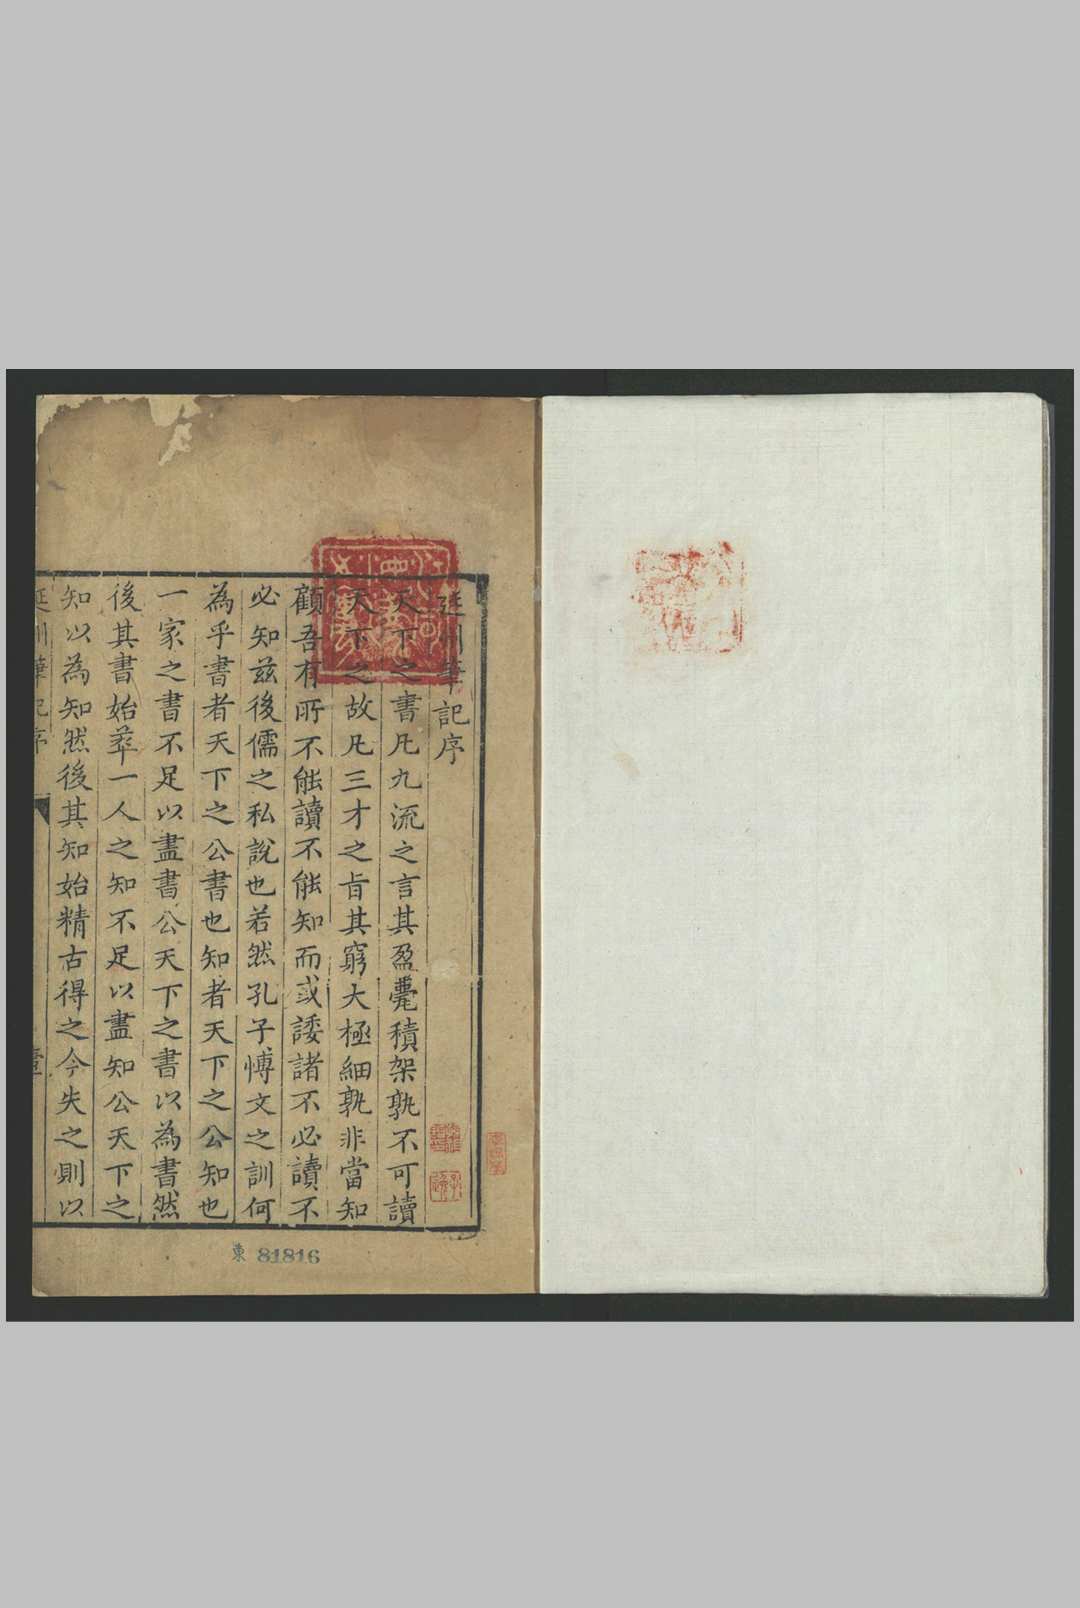 延州筆記序
天下之書凡九流之言其盈甍積架孰不可讀
天下之故凡三才之旨其窮大極細孰非當知
顧吾有所不能讀不能知而或諉諸不必讀不
必知茲後儒之私說也若然孔子博文之訓何
為乎書者天下之公書也知者天下之公知也
一家之書不足以盡書公天下之書以為書然
後其書始萃一人之知不足以盡知公天下之
知以為知然後其知始精古得之今失之則以
延州筆記序
東 81816